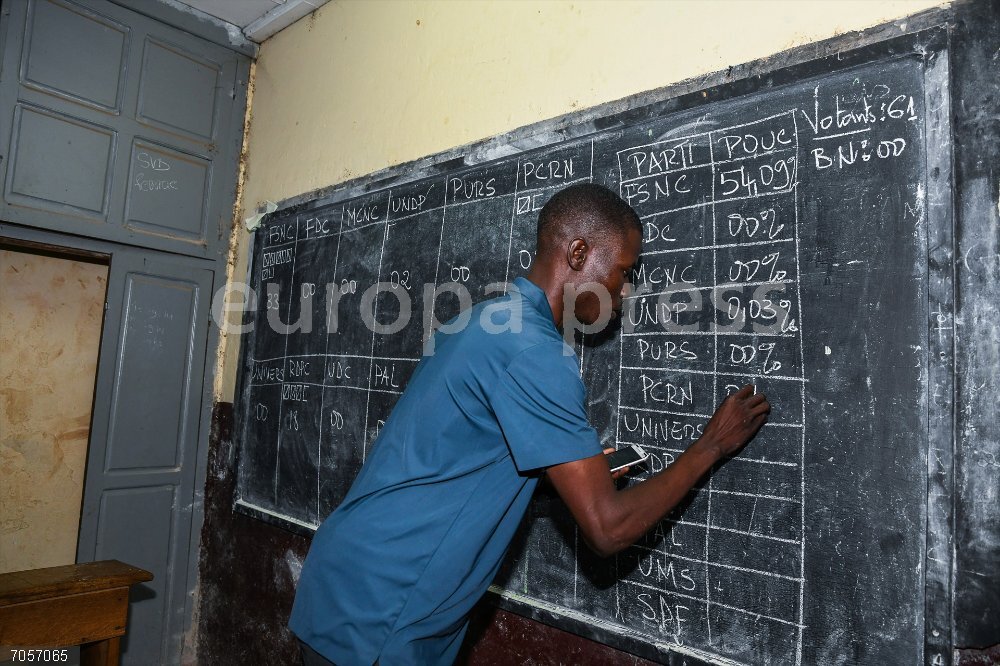 SVD
FSNC FDC MCNC UNDP PURS PCRN
33 00 00 02 00
UNIVERS RDPC UDC PAL
00 18 00
PARTI POUC
FSNC 54,09%
FDC 00%
MCNC 00%
UNDP 0,03%
PURS 00%
PCRN
UNIVERS
UMS
SDF
Votants: 61
BN: 00
europa press
7057065
www.europapress.es